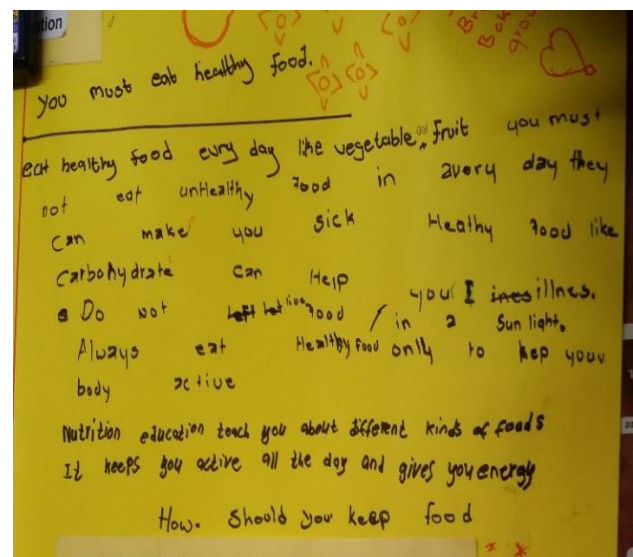 tion
Br
Bok
gro
you must eat healthy food.
eat healthy food evry day like vegetable and fruit you must
not eat unHealthy Food in avery day they
Can make you sick Heathy Food like
Carbohydrate Can Help you I ines illnes.
Do not left let live Food in a Sun light.
Always eat Healthy Food only to kep your
body active
Nutrition education teach you about different kinds of foods
It keeps you active all the day and gives you energy
How. Should you keep food